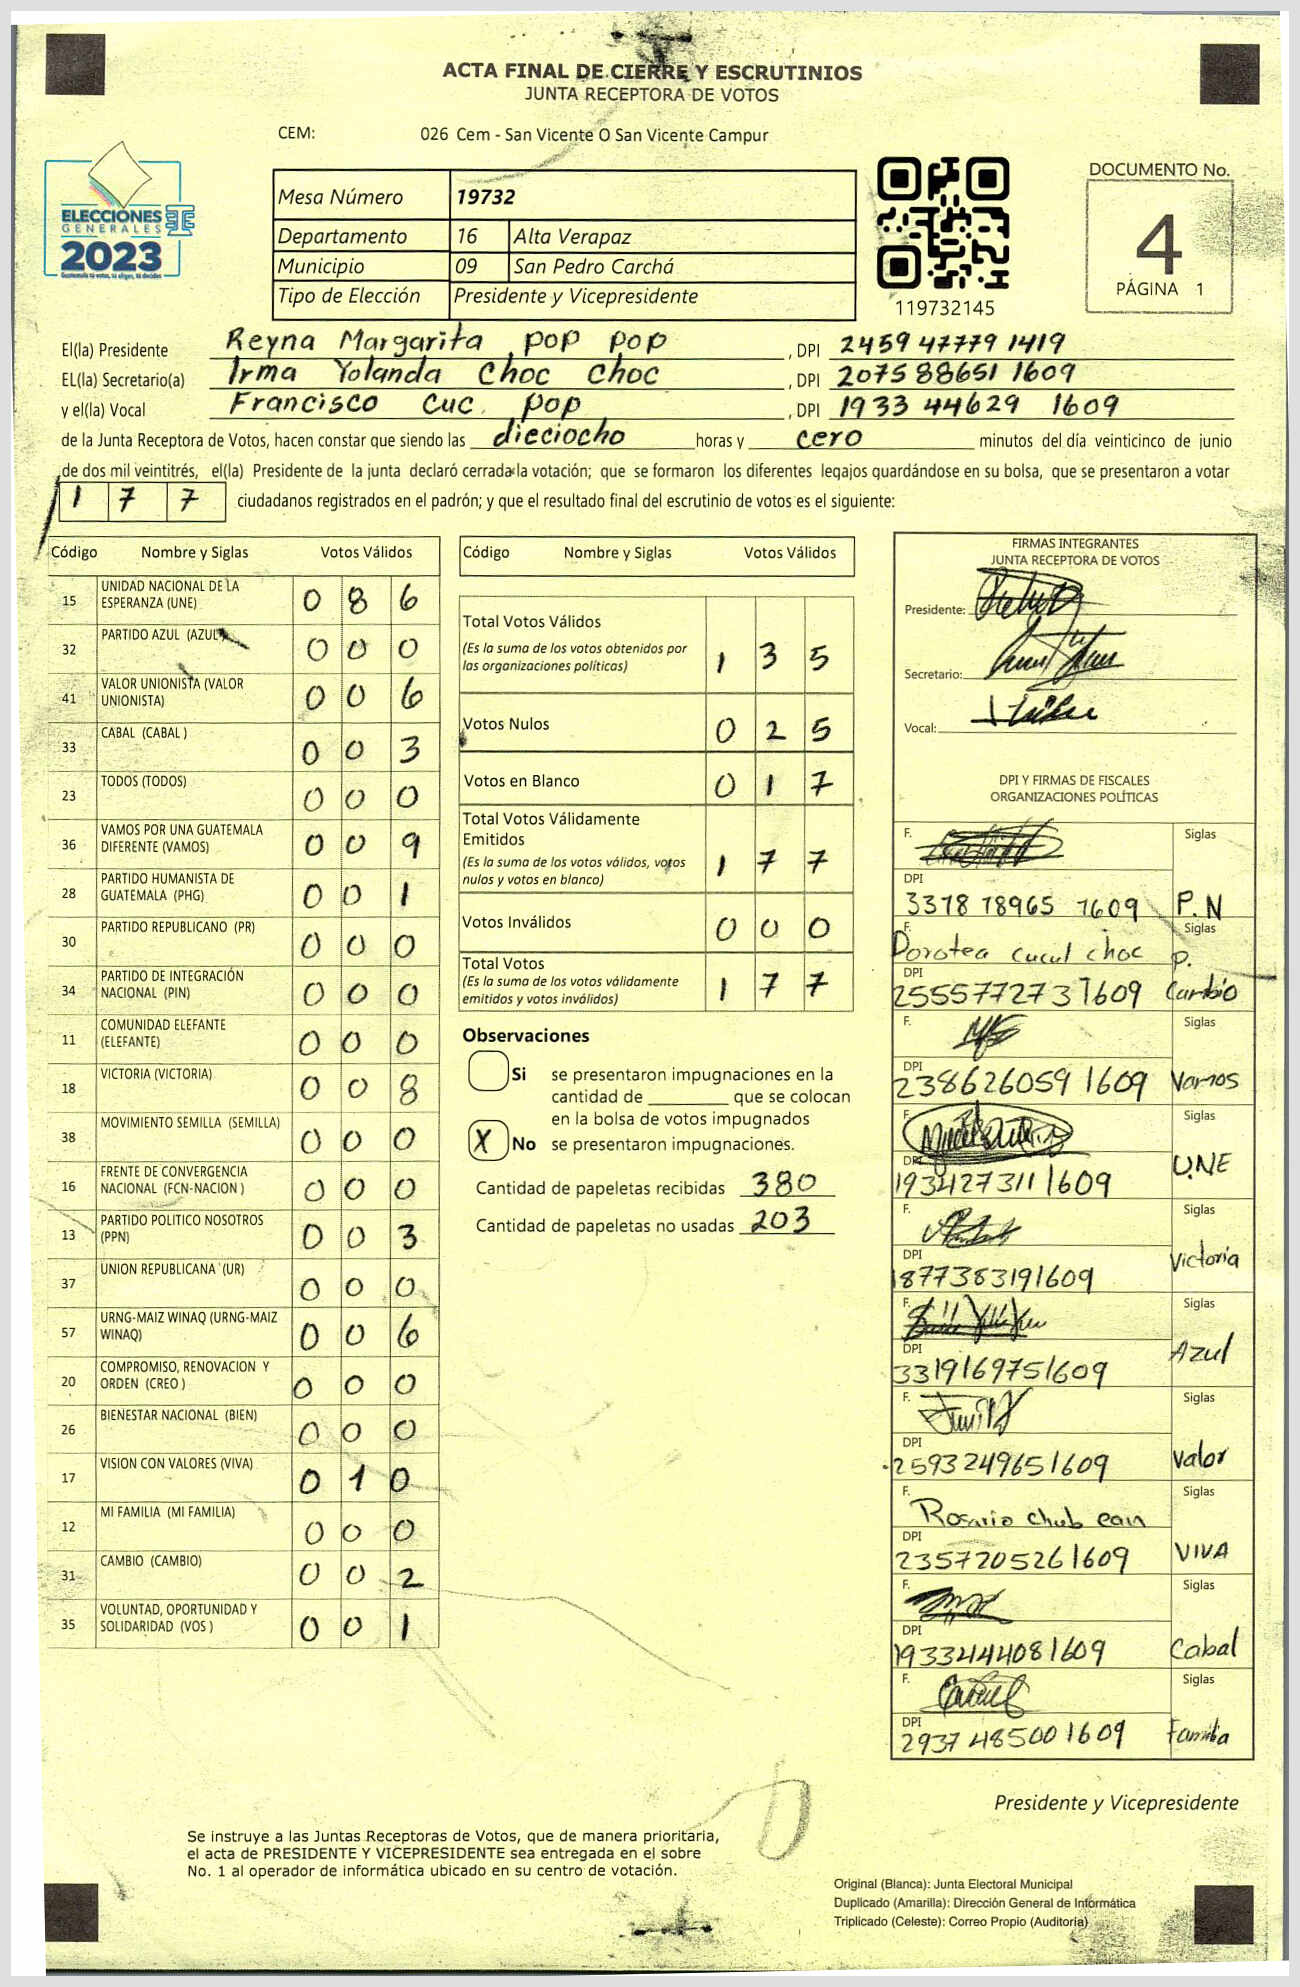 ACTA FINAL DE CIERRE Y ESCRUTINIOS
JUNTA RECEPTORA DE VOTOS
CEM: 026 Cem - San Vicente O San Vicente Campur
ELECCIONES
GENERALES
2023
Mesa Número 19732
Departamento 16 Alta Verapaz
Municipio 09 San Pedro Carchá
Tipo de Elección Presidente y Vicepresidente
119732145
DOCUMENTO No.
4
PÁGINA 1
El(la) Presidente Reyna Margarita pop pop , DPI 2459 47779 1419
EL(la) Secretario(a) Irma Yolanda Choc Choc , DPI 2075 88651 1609
y el(la) Vocal Francisco Cuc pop , DPI 1933 44629 1609
de la Junta Receptora de Votos, hacen constar que siendo las dieciocho horas y cero minutos del día veinticinco de junio
de dos mil veintitrés, el(la) Presidente de la junta declaró cerrada la votación; que se formaron los diferentes legajos guardándose en su bolsa, que se presentaron a votar
1 7 7 ciudadanos registrados en el padrón; y que el resultado final del escrutinio de votos es el siguiente:
Código Nombre y Siglas Votos Válidos
15 UNIDAD NACIONAL DE LA ESPERANZA (UNE) 0 8 6
32 PARTIDO AZUL (AZUL) 0 0 0
41 VALOR UNIONISTA (VALOR UNIONISTA) 0 0 6
33 CABAL (CABAL ) 0 0 3
23 TODOS (TODOS) 0 0 0
36 VAMOS POR UNA GUATEMALA DIFERENTE (VAMOS) 0 0 9
28 PARTIDO HUMANISTA DE GUATEMALA (PHG) 0 0 1
30 PARTIDO REPUBLICANO (PR) 0 0 0
34 PARTIDO DE INTEGRACIÓN NACIONAL (PIN) 0 0 0
11 COMUNIDAD ELEFANTE (ELEFANTE) 0 0 0
18 VICTORIA (VICTORIA) 0 0 8
38 MOVIMIENTO SEMILLA (SEMILLA) 0 0 0
16 FRENTE DE CONVERGENCIA NACIONAL (FCN-NACION ) 0 0 0
13 PARTIDO POLITICO NOSOTROS (PPN) 0 0 3
37 UNION REPUBLICANA (UR) 0 0 0
57 URNG-MAIZ WINAQ (URNG-MAIZ WINAQ) 0 0 6
20 COMPROMISO, RENOVACION Y ORDEN (CREO ) 0 0 0
26 BIENESTAR NACIONAL (BIEN) 0 0 0
17 VISION CON VALORES (VIVA) 0 1 0
12 MI FAMILIA (MI FAMILIA) 0 0 0
31 CAMBIO (CAMBIO) 0 0 2
35 VOLUNTAD, OPORTUNIDAD Y SOLIDARIDAD (VOS ) 0 0 1
Código Nombre y Siglas Votos Válidos
Total Votos Válidos
(Es la suma de los votos obtenidos por
las organizaciones políticas) 1 3 5
Votos Nulos 0 2 5
Votos en Blanco 0 1 7
Total Votos Válidamente
Emitidos
(Es la suma de los votos válidos, votos
nulos y votos en blanco) 1 7 7
Votos Inválidos 0 0 0
Total Votos
(Es la suma de los votos válidamente
emitidos y votos inválidos) 1 7 7
Observaciones
Si se presentaron impugnaciones en la
cantidad de ________ que se colocan
en la bolsa de votos impugnados
X No se presentaron impugnaciones.
Cantidad de papeletas recibidas 380
Cantidad de papeletas no usadas 203
FIRMAS INTEGRANTES
JUNTA RECEPTORA DE VOTOS
Presidente:
Secretario:
Vocal:
DPI Y FIRMAS DE FISCALES
ORGANIZACIONES POLÍTICAS
F. Siglas
DPI
3378 78965 1609 P.N
F. Dorotea cucul choc Siglas
DPI P.
2555772731609 Cambio
F. Siglas
DPI
2386260591609 Vamos
F. Siglas
DPI
1934273111609 UNE
F. Siglas
DPI
1877383191609 Victoria
F. Siglas
DPI
3319169751609 Azul
F. Siglas
DPI
2593249651609 Valor
F. Rosario chub can Siglas
DPI
2357205261609 VIVA
F. Siglas
DPI
1933444081609 Cabal
F. Siglas
DPI
2937485001609 Familia
Presidente y Vicepresidente
Se instruye a las Juntas Receptoras de Votos, que de manera prioritaria,
el acta de PRESIDENTE Y VICEPRESIDENTE sea entregada en el sobre
No. 1 al operador de informática ubicado en su centro de votación.
Original (Blanca): Junta Electoral Municipal
Duplicado (Amarilla): Dirección General de Informática
Triplicado (Celeste): Correo Propio (Auditoría)